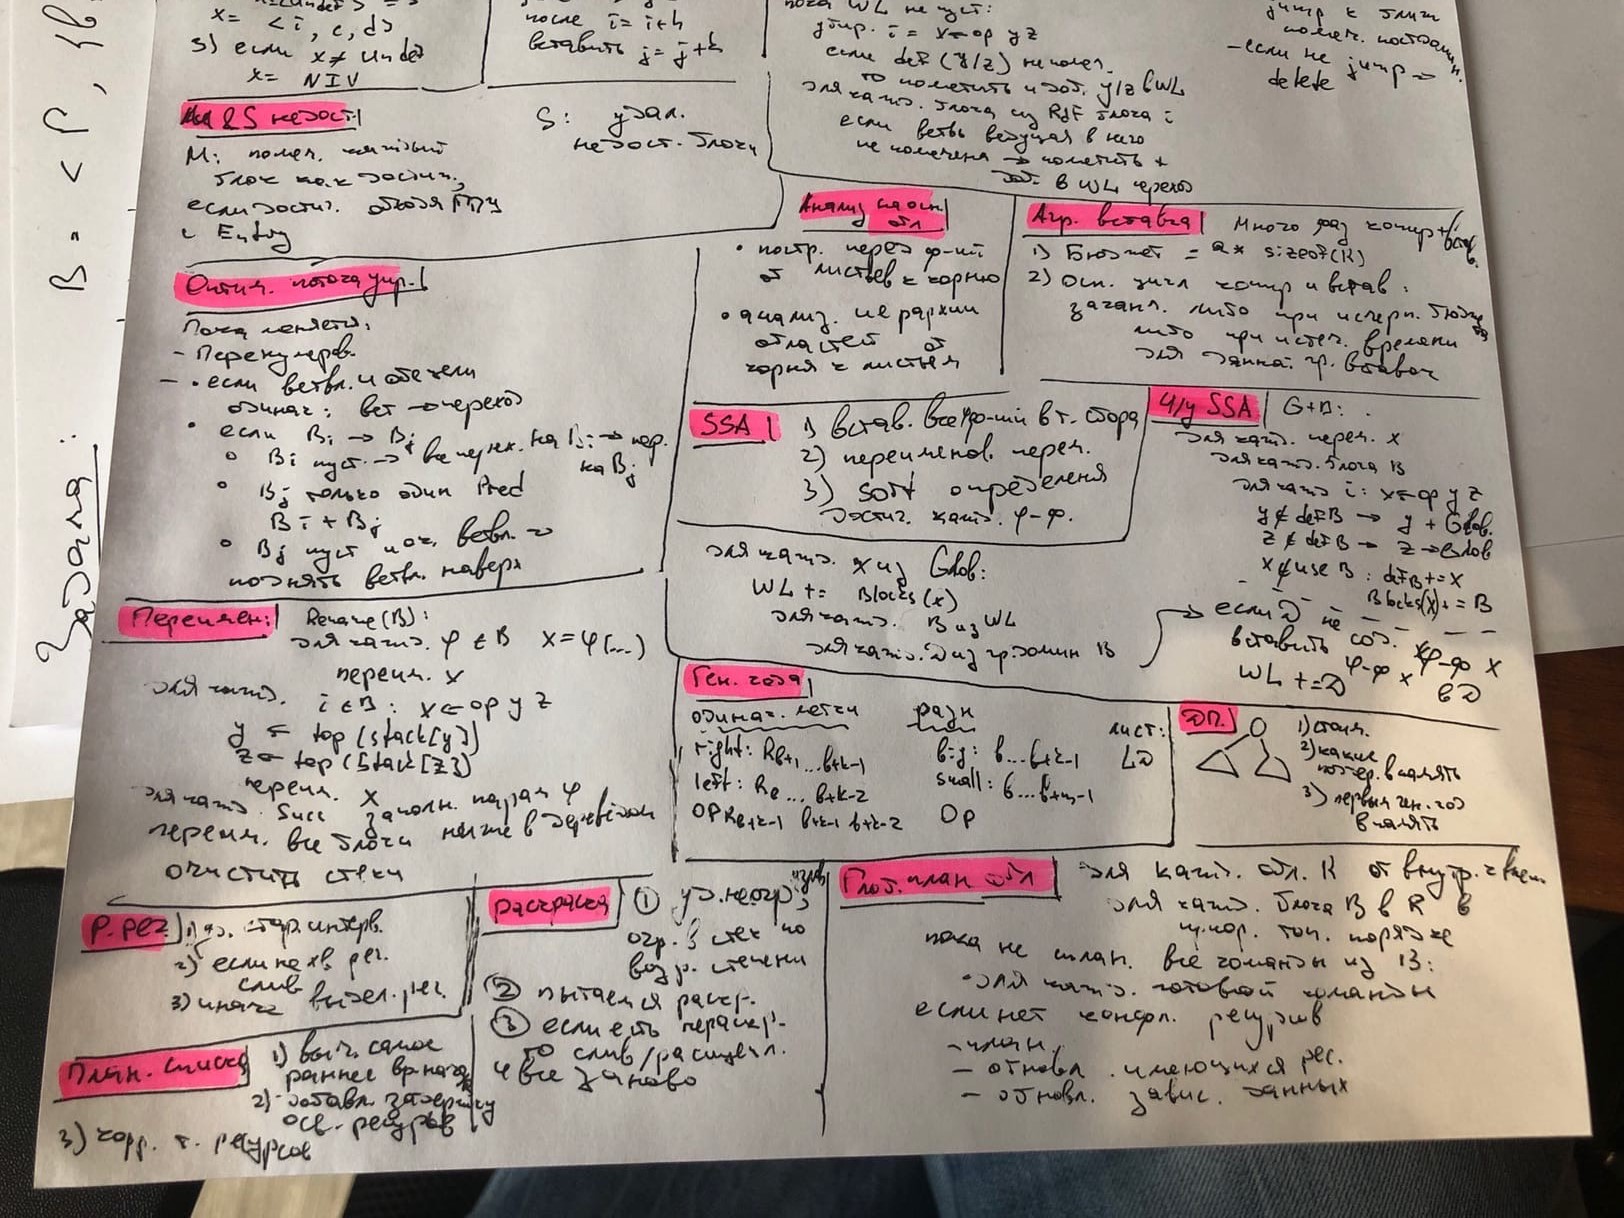 x = < i, c, d>
3) если x ≠ Undef
x = NIV
после i = i+h
вставить j = j+k
пока WL не пуст:
i = x ← op y z
если def (y/z) не помеч.
то пометить и доб. y/z в WL
для кажд. блока из RDF блока i
если ветвь ведущая в него
не помечена → пометить +
доб. в WL переход
jump к ближ
помеч. постдомин.
- если не jump ⇒
delete
M&S недост
M: помеч. каждый
блок как достиж,
если достиг. обходя ГПУ
с Entry
S: удал.
недост. блоки
Оптим. потока упр.
Пока меняется:
- Перенумеров.
- • если ветвл. и обе цели
одинак: вет → переход
• если Bi → Bj
° Bi пуст. → все перех. на Bi → пер.
на Bj
° Bj только один Pred
Bi + Bj
° Bj пуст и ок. ветвл. ⇒
поднять ветвл. наверх
Анализ на осн.
обл
• постр. через ф-ий
от листьев к корню
• анализ. иерархии
областей от
корня к листьям
Агр. вставка
Много раз копир + встав.
1) Бюджет = a * sizeof(R)
2) Осн. цикл копир и встав:
заканч. либо при исчерп. бюджета
либо при истеч. времени
для данной гр. вставок
SSA
1) встав. все φ-ции в т. сбора
2) переименов. перем.
3) sort определения
достиг. кажд. φ-ф.
Ч/у SSA
G+D:
для кажд. перем. x
для кажд. блока B
для кажд i: x ← op y z
y ∉ def B → y + Glob.
z ∉ def B → z → Glob
x ∉ use B : def B += x
Blocks(x) += B
для кажд. x из Glob:
WL += Blocks(x)
для кажд. B из WL
для кажд. D из гр. домин B
если D не сод. φ-ф x
вставить φ-ф x в D
WL += D
Переимен:
Rename(B):
для кажд. φ ∈ B x = φ(...)
переим. x
для кажд. i ∈ B : x ← op y z
y ← top (stack[y])
z ← top (stack[z])
переим. x
для кажд. Succ заполн. парам φ
переим. все блоки ниже в дереве дом
очистить стеки
Ген. кода
одинак. метки
right: Rb+1...b+k-1
left: Rb... b+k-2
OP Rb+k-1 b+k-1 b+k-2
разн
big: b...b+k-1
small: b...b+m-1
Op
лист:
LD
ДП.
1) стоим.
2) какие
поддер. в память
3) первым ген. код
в память
Р. рег
2) если не хв. рег.
слив
3) иначе выдел. рег.
раскраска
① уд. неогр. узлы,
огр. в стек по
возр. степени
② пытаемся раскр.
③ если есть нераскр.
то слив/расщепл.
и все заново
Глоб. план обл
для кажд. обл. R от внутр. к внеш.
для кажд. блока B в R в
приор. топ. порядке
пока не план. все команды из B:
• для кажд. готовой команды
если нет конфл. ресурсов
- план,
- обновл. имеющихся рес.
- обновл. завис. данных
План. списка
1) выч. самое
раннее вр. нач
2) добавл. задержку
осв. ресурсов
3) корр. т. ресурсов
Задача :
B = < P,